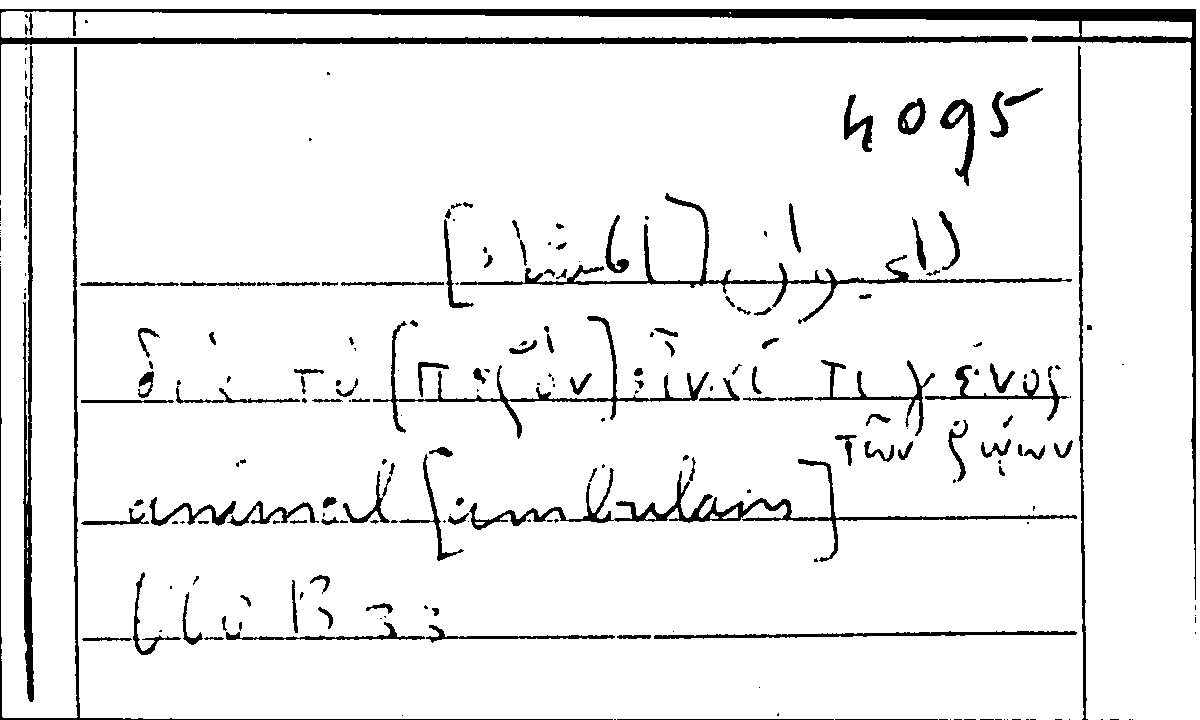 4095
διὰ τὸ [πεζὸν] εἶναί τι γένος
τῶν ζῴων
animal [ambulans]
660 B 33